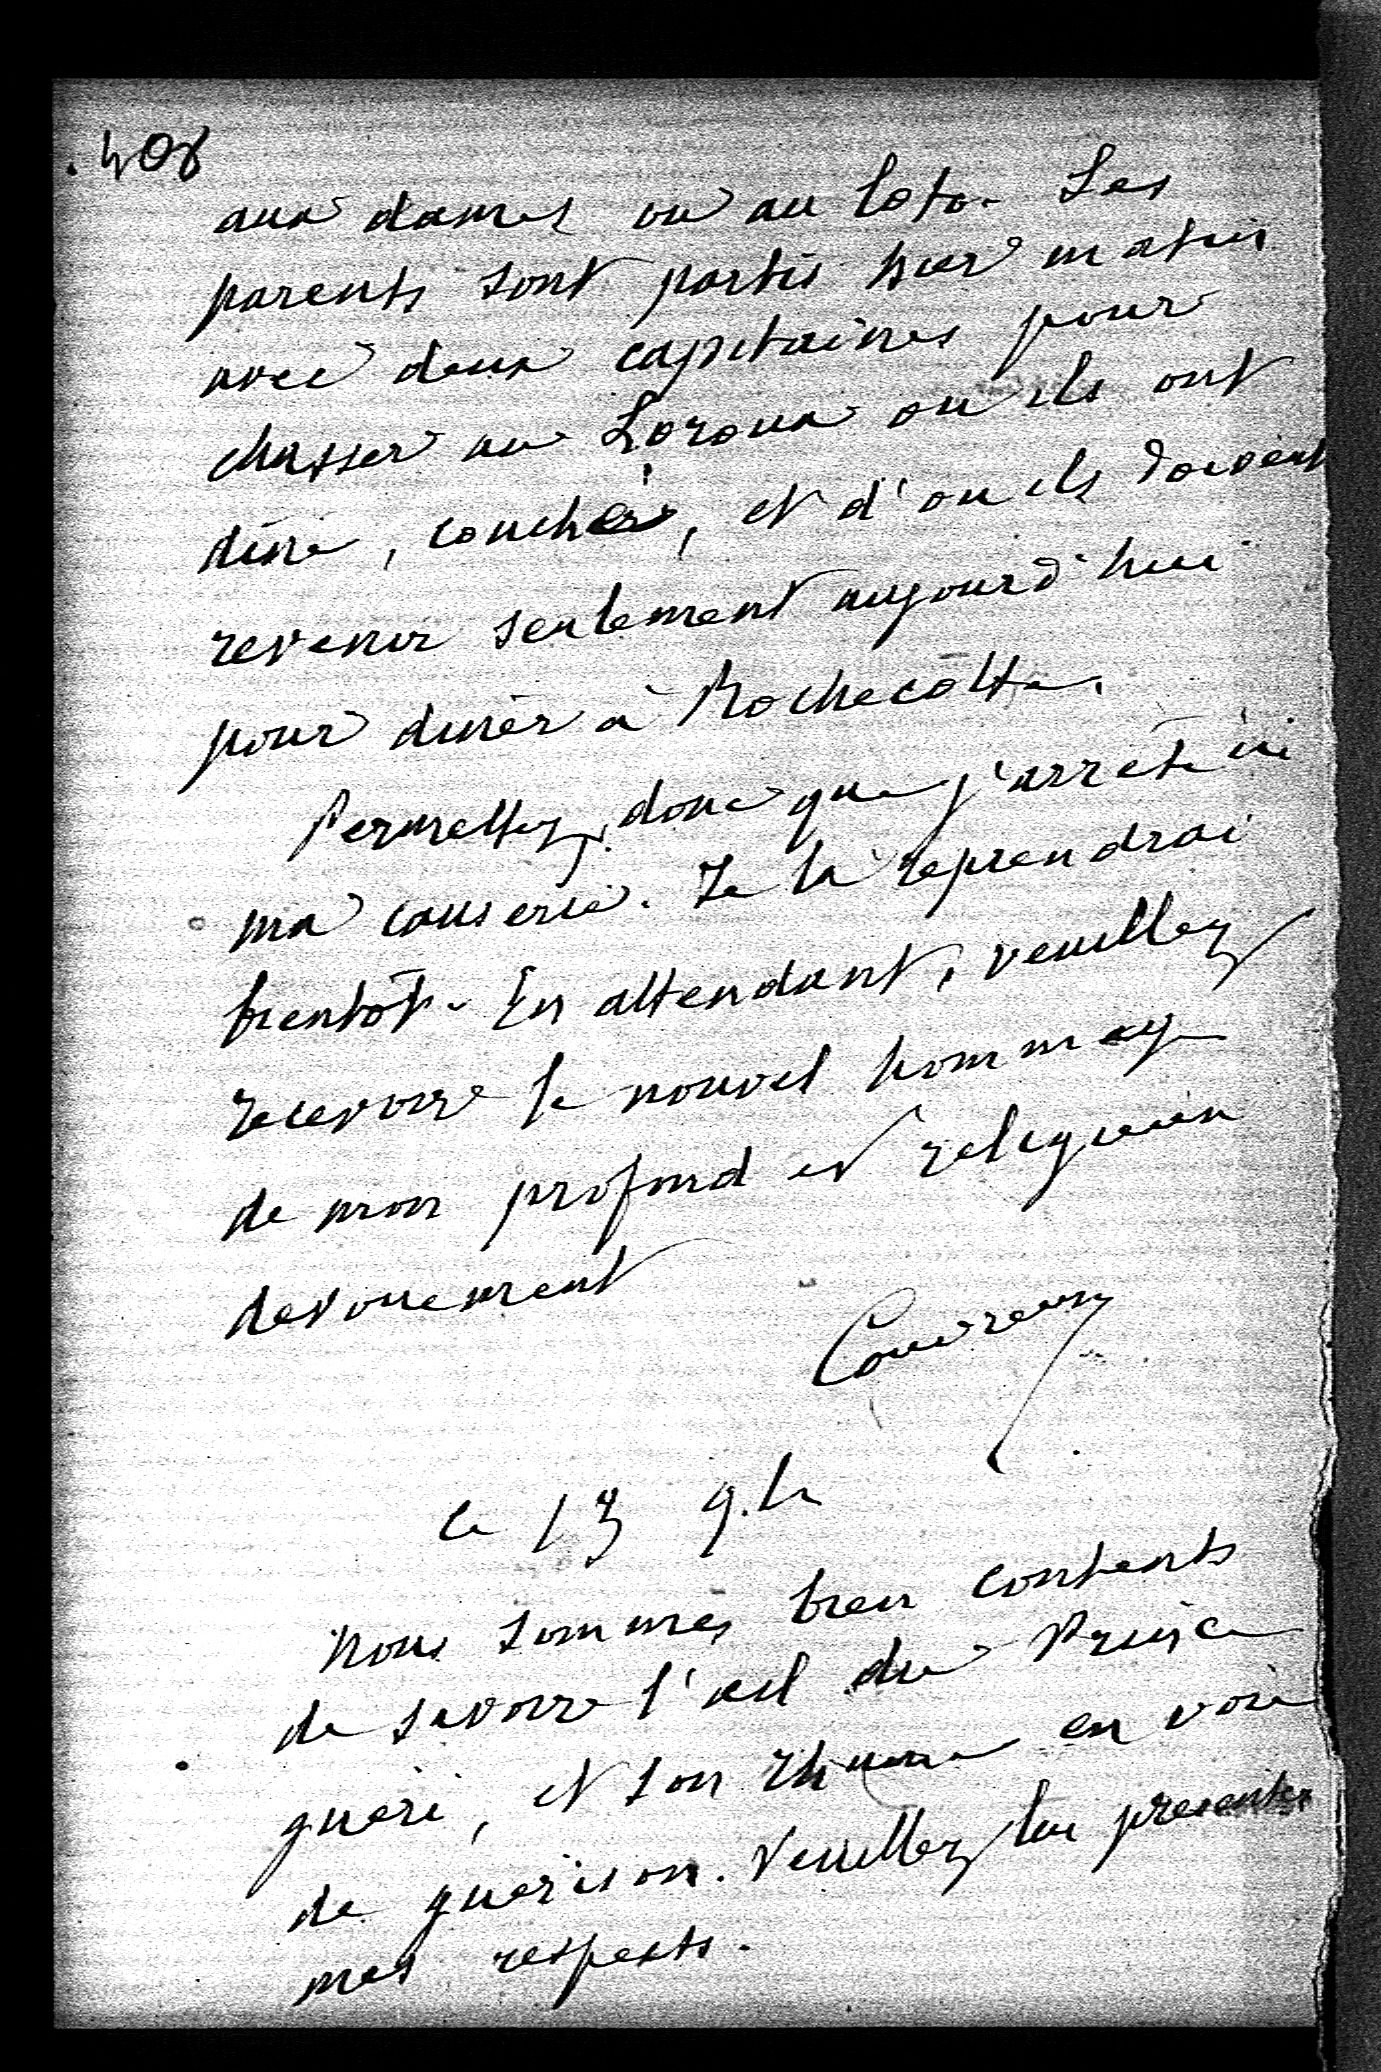 408
aux dames ou au loto. Les
parents sont partis hier matin
avec deux capitaines pour
chasser au Loroux ou ils ont
diné, couché, et d'ou ils doivent
revenir seulement aujourd'hui
pour diner à Rochecotte.
Permettez donc que j'arrête ici
ma causerie. Je la reprendrai
bientôt. En attendant, veuillez
recevoir le nouvel hommage
de mon profond et religieux
devouement
Couvreux
le 13 9.bre
Nous sommes bien contents
de savoir l'œil du Prince
guéri, et son rhume en voie
de guérison. Veuillez lui presenter
mes respects.